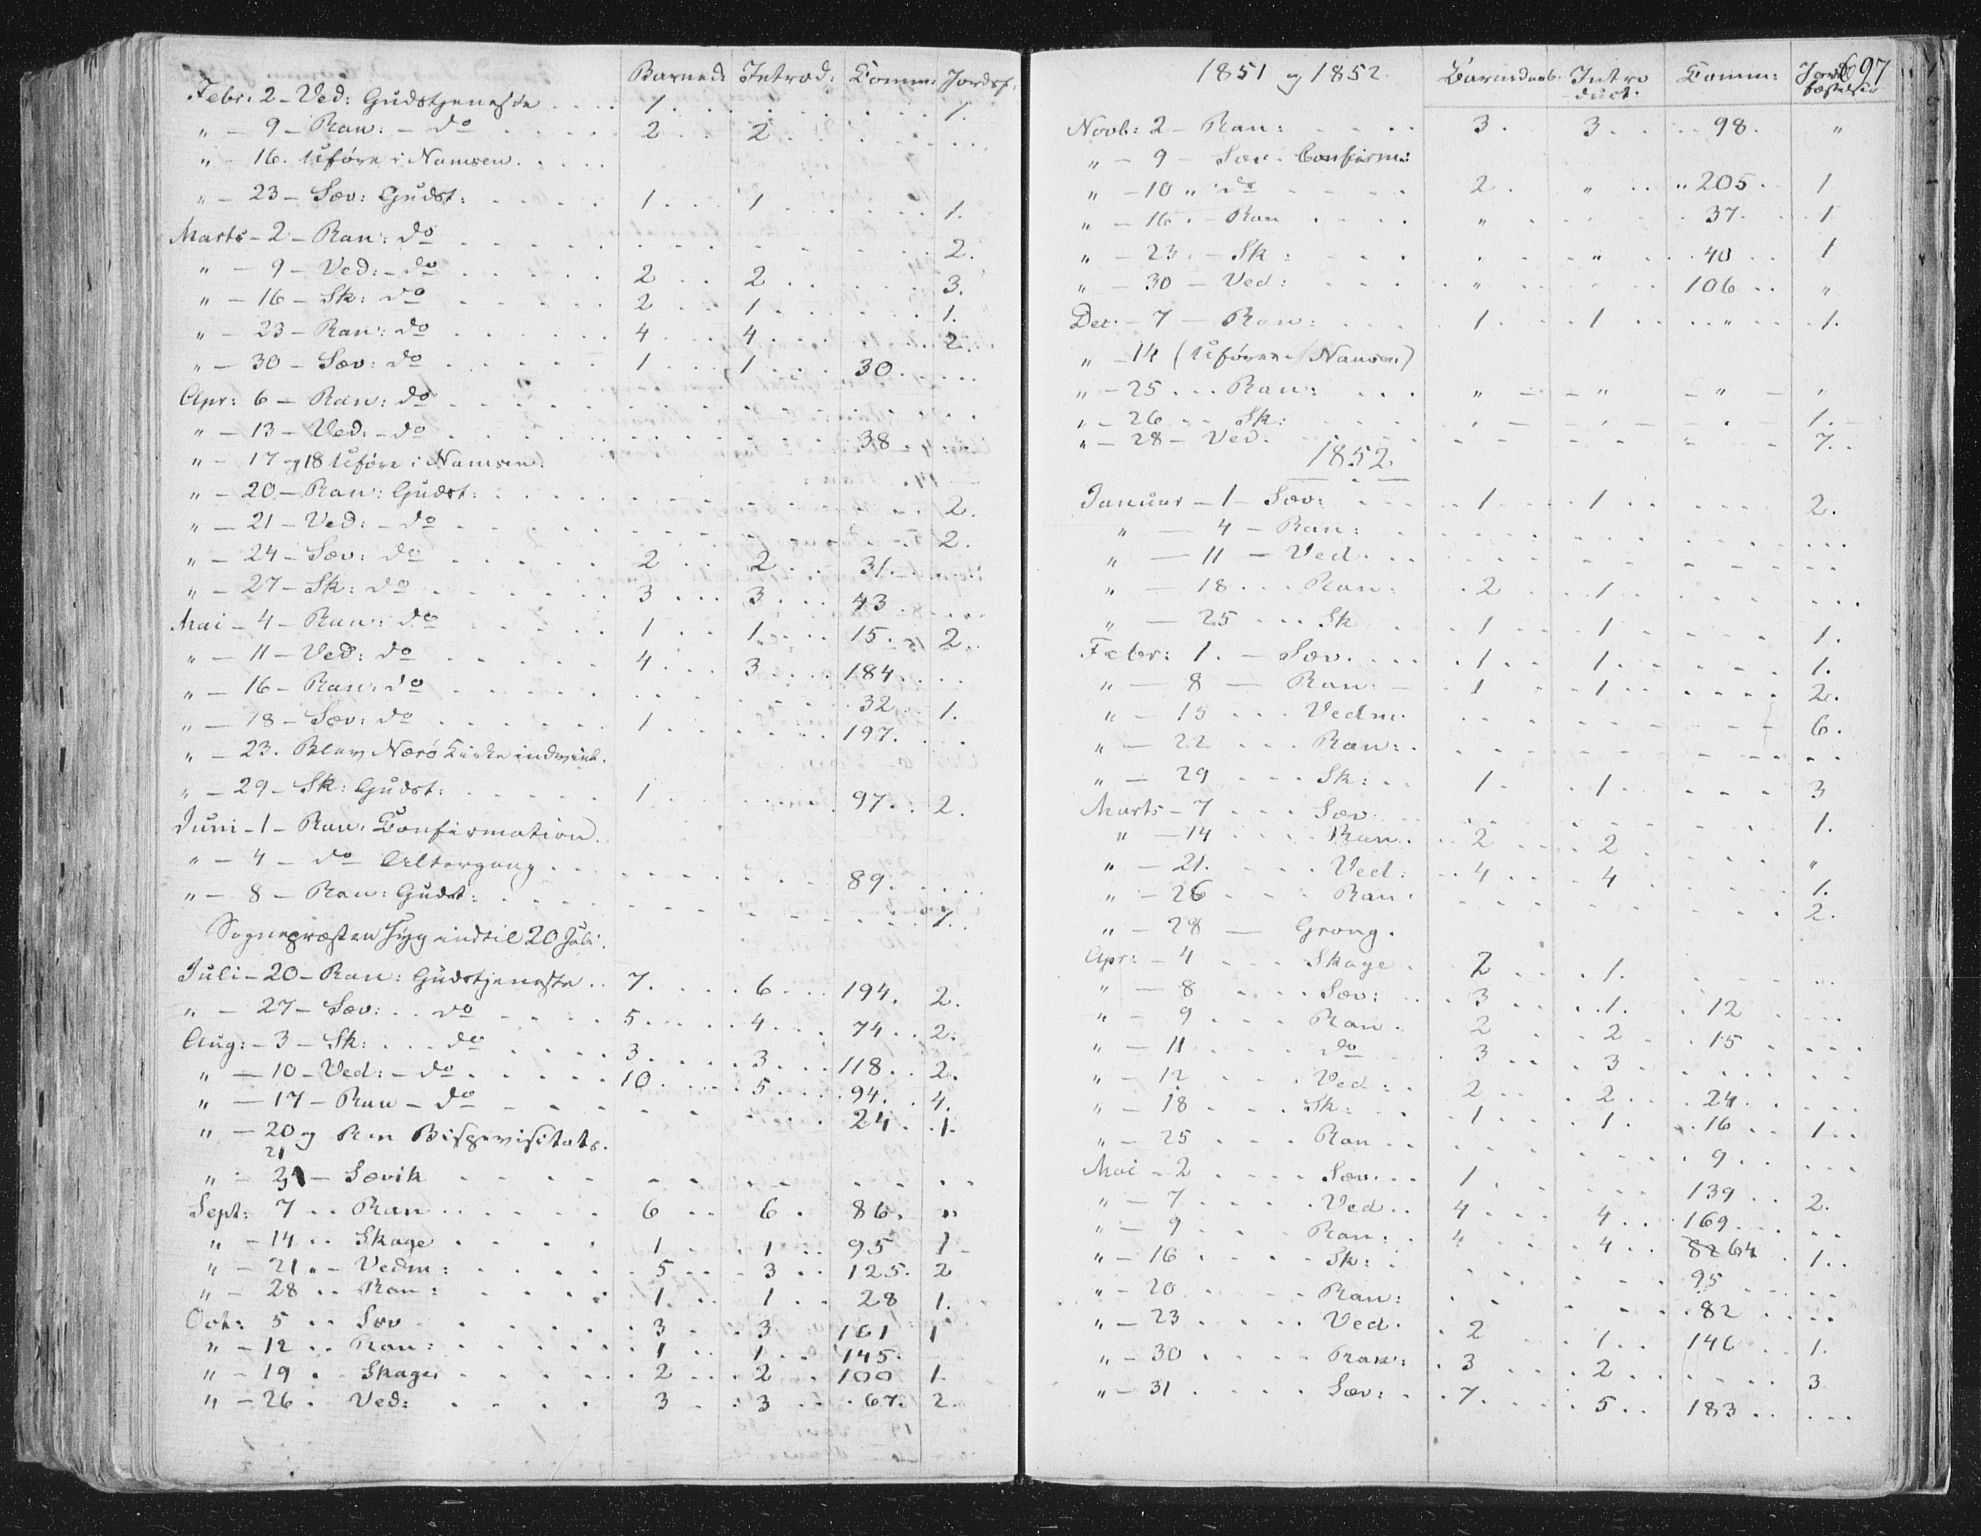 Barned: Introd: Comm: Jordsf.
Febr: 2 - Ved: Gudstjeneste . . . . 1. . . . . . . 1.
" - 9 - Ran: - do . . . . 2 . . 2 . . . .
" - 16. Uføre i Namsen . . . .
" - 23 - Sæv: Gudst: . . . . 1 . . 1 . . . . 1.
Marts - 2 - Ran: do . . . . 2.
" - 9 - Ved: - do . . . . 2 . . 2 . . . . 3.
" - 16 - Sk: do . . . . 2 . . 1 . . . . 1.
" - 23 - Ran: do . . . . 4 . . 4 . . . . 2.
" - 30 - Sæv: do . . . . 1 . . 1 . . 30 . . .
Apr: 6 - Ran: do . . . .
" - 13 - Ved. - do . . . . 38 . .
" - 17 og 18 Uføre i Namsen.
" - 20 - Ran: Gudst: . . . . 2.
" - 21 - Ved: - do . . . . 2.
" - 24 - Sæv: do . . . . 2 . . 2 . . 31 . .
" - 27 - Sk: do . . . . 3 . . 3 . . 43 . .
Mai - 4 - Ran: do . . . . 1 . . 1 . . 15 . . 2.
" - 11 - Ved: do . . . . 4 . . 3 . . 184 . .
" - 16 - Ran: do . . . . 32 . . 1.
" - 18 - Sæv: do . . . . 1 . . . . 197. . .
" - 23. Blev Nærø Kirke indviet.
" - 29 - Sk: Gudst: . . . . 1 . . . . 97 . . 2.
Juni - 1 - Ran: Confirmation.
" - 4 - do Altergang . . . . 89 . . .
" - 8 - Ran: Gudst: . . . . 1.
Sognepræsten syg indtil 20 Juli.
Juli - 20 - Ran: Gudstjeneste . . 7. . . 6 . . 194. 2.
" - 27 - Sæv: . . do . . . . 5 . . 4 . . 74 . . 2.
Aug: - 3 - Sk: . . . do . . . . 3 . . 3 . . 118 . . 2.
" - 10 - Ved: - do . . . . 10 . . 5 . . 94. . 4.
" - 17 - Ran - do . . . . 24 . 1.
" - 20 og 21 Ran Bispevisitats.
" - Sævik . . . .
Sept: 7 . . Ran . . . . 6 . . 6 . 86. "
" - 14 . . Skage . . . . 1 . . 1 . . 95 1 -
" - 21 . - Vedm: . . . . 5 . . 3 . . 125. 2
" - 28 . . Ran: . . . . 1 . . 1 . . 28 1.
Oct: 5 . . Sæv . . . . 3 . . 3 . . 161 1
" - 12 . . Ran: . . . . 1 . . 1 . . 145.
" - 19 . Skage . . . . 2 . . 2 . 100 1.
" - 26 . Ved: . . . . 3 . . 3 . . 67. 2.
1851 og 1852. Barnedaab. Introduct: Comm: Jordfæstelser 697
Novb: 2 - Ran: . . . . 3. 3 . . 98. "
" - 9 - Sæv. Confirm:
" - 10 " do . . . . 2 . " . . " 205 . 1
" - 16 . - Ran . . . . " . . . 37. . 1
" - 23 . - Sk: . . . . " . . 40 . . 1
" - 30 - Ved: . . . . " . . 106 . . "
Dec. - 7 - Ran: . . . . 1. . . 1 . . " . . 1.
" - 14 (Uføre i Namsen)
" - 25 . . . Ran: . . . " - - " - " - "
" - 26 . . . Sk: . . . 1.
" - 28 - Ved. . . . 7.
1852.
Januar - 1 - Sæv: . . . . 1 . . 1 . . . 2.
" - 4 - Ran: . . . .
" - 11 - Ved. . . . .
" - 18 . . . Ran: . . 2 . . 1. . . .
" - 25 . . . Sk . . 1 . . 1 . . . 1.
Febr: 1. - Sæv. . . . 1 . . 1. . . . 1.
" - 8 - Ran: - 1 . . 1 . . . . 2.
" - 15 . . . Vedm. . . . 6.
" - 22 . . . Ran: . . . .
" - 29 . . . Sk: . . 1. . . 1. . . . 3
Marts - 7 . . . Sæv . . . . 1.
" - 14 . . . Ran. . . 2 . . 2 . . . "
" - 21. . . . Ved: . . 4 . . 4 . . . 1.
" - 26 . . . Ran. . . . 2.
" - 28 — Grong.
Apr: - 4 . . . Skage . 2 . . 1. . . .
" - 8 . . . Sæv: . . 3 . . 1. . 12 . . .
" - 9 . . . Ran. . 2 . . 2 . . 15 . . .
" - 11 . . . do . 3 . . 3 . . . .
" - 12 . . . Ved: . . 2 . . 2 . . 24 . . .
" - 18 . . . Sk: . . 1 . . 1. . 16 . . 1. .
" - 25 . . . Ran . . . 9 . . .
Mai - 2 . . . Sæv. . . 1 . . . 139 . . 2.
" - 7 . . . Ved . . 4 . . 4 . . 169 . . .
" - 9 . . . Ran: . 4 . . 4 . . 82 64 . 1. .
" - 16 . . . Sk: . . . 95 . . .
" - 20 . . . Ran: . . . 82 . . .
" - 23 . . . Ved. . 2 . . 1. . 146 . . 1.
" - 30 . . . Ran: . 3 . . 2 . . . 3
" - 31 . . . Sæv: . . 7. . . 5 . . 183 . . . .